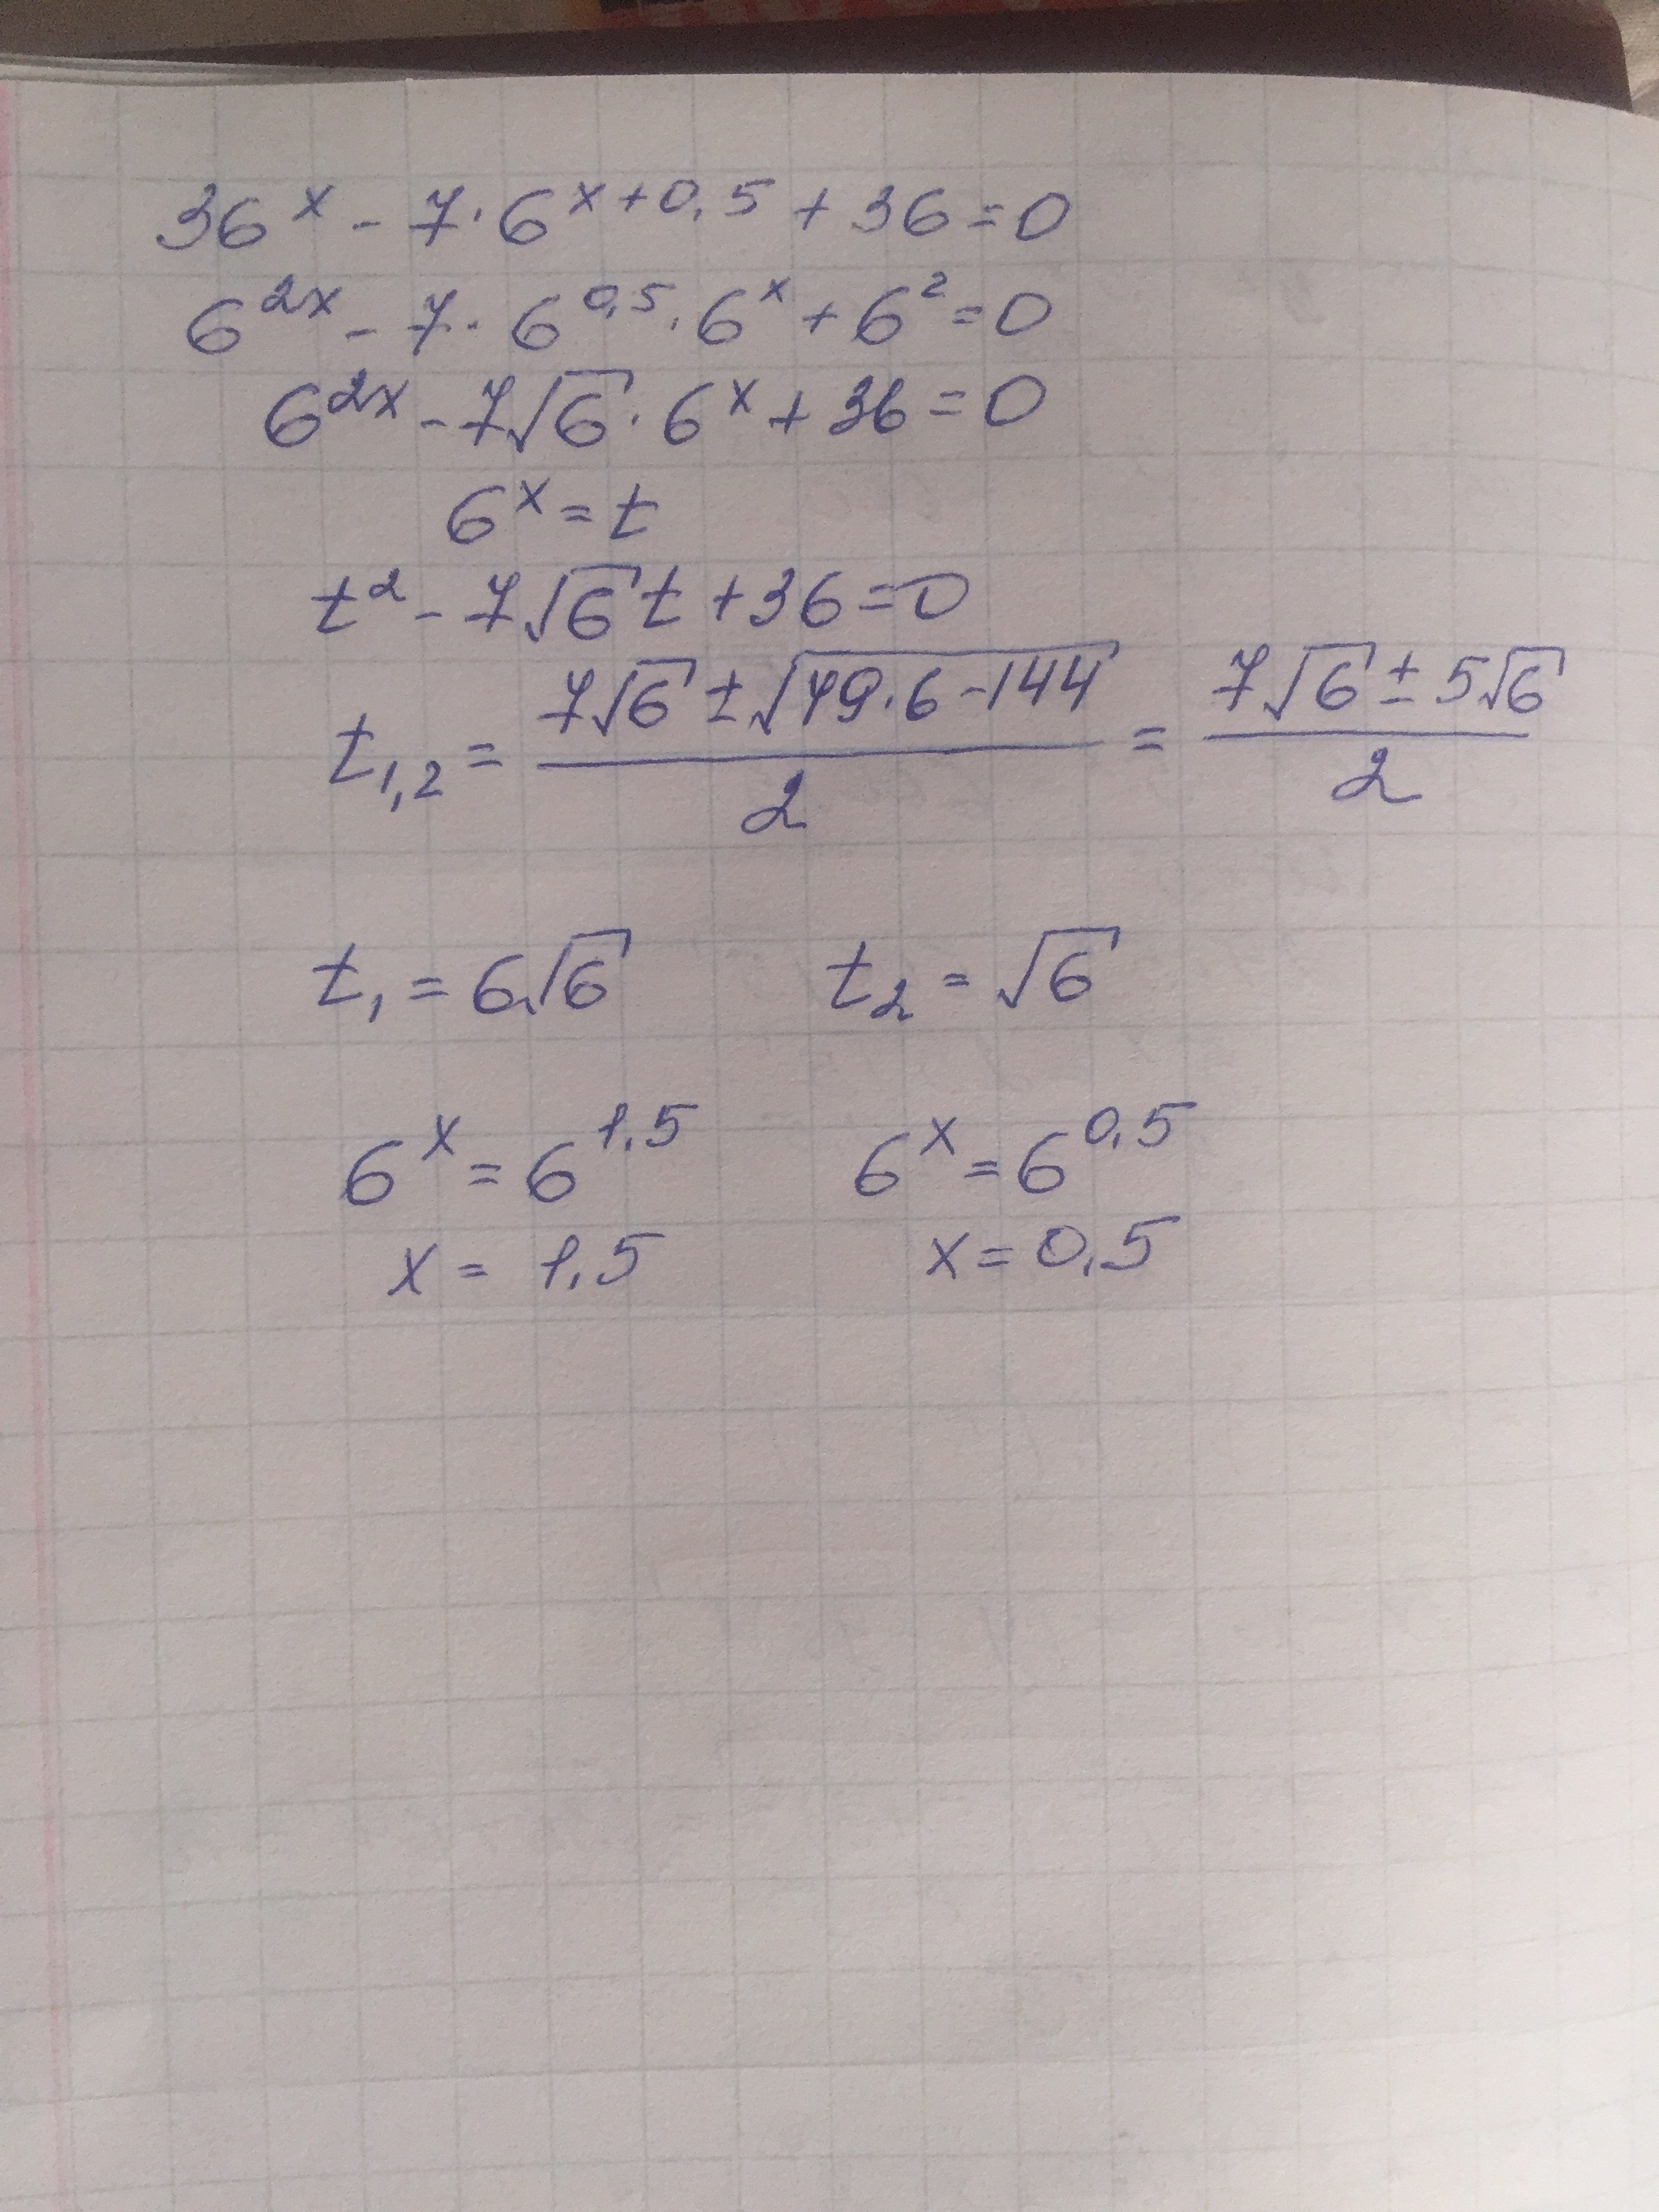 36^x - 7 · 6^(x+0,5) + 36 = 0
6^(2x) - 7 · 6^(0,5) · 6^x + 6^2 = 0
6^(2x) - 7√6 · 6^x + 36 = 0
6^x = t
t^2 - 7√6 t + 36 = 0
t_(1,2) = (7√6 ± √(49·6 - 144))/2 = (7√6 ± 5√6)/2
t_1 = 6√6 t_2 = √6
6^x = 6^(1,5) 6^x = 6^(0,5)
x = 1,5 x = 0,5